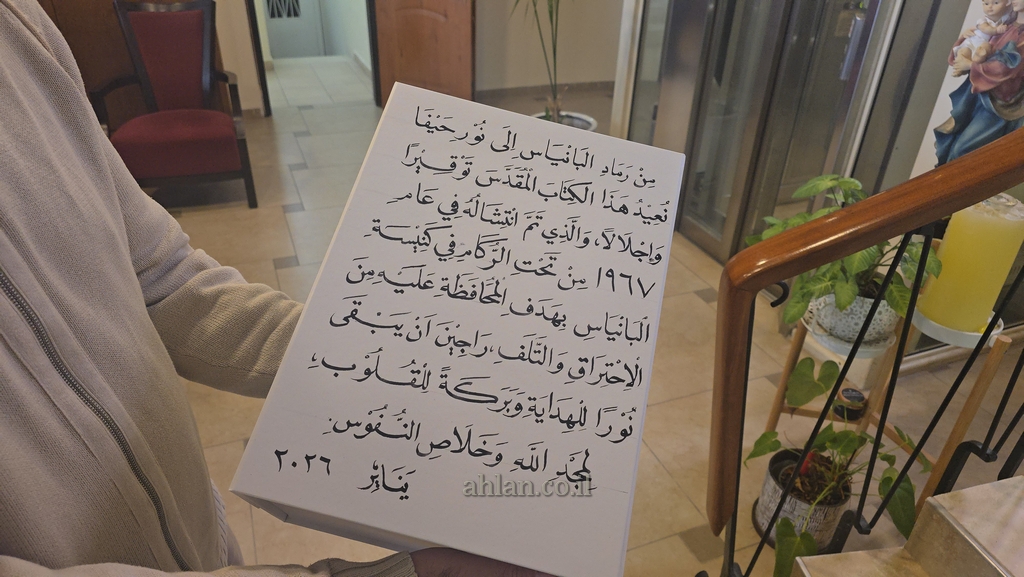 مِنْ رَمَادِ البَانْيَاسِ إِلَى نُوْرِ حَيْفَا
نُعِيْدُ هَذَا الكِتَابَ المُقَدَّسَ تَوْقِيْرًا
وَإِجْلَالًا، وَالَّذِي تَمَّ انْتِشَالُهُ فِي عَامِ
١٩٦٧ مِنْ تَحْتِ الرُّكَامِ فِي كَنِيْسَةِ
البَانْيَاسِ بِهَدَفِ المُحَافَظَةِ عَلَيْهِ مِنَ
الْاِحْتِرَاقِ وَالتَّلَفِ، رَاجِيْنَ اَنْ يَبْقَى
نُوْرًا لِلْهِدَايَةِ وَبَرَكَةً لِلْقُلُوْبِ،
لِمَجْدِ اللهِ وَخَلَاصِ النُّفُوْسِ.
يَنَايِرْ ٢٠٢٦
ahlan.co.il